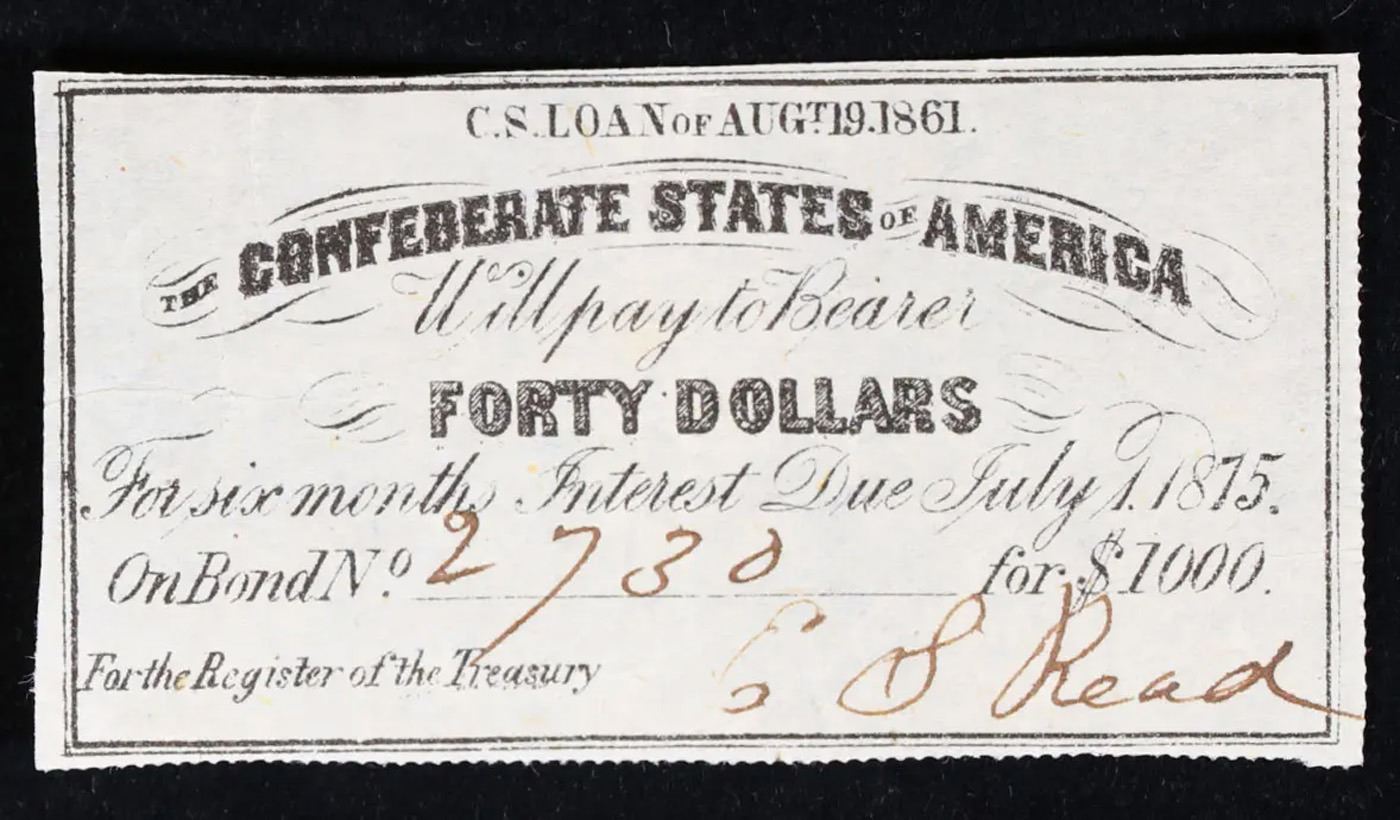 C.S. LOAN OF AUGT. 19. 1861.
THE CONFEDERATE STATES OF AMERICA
Will pay to Bearer
FORTY DOLLARS
For six months Interest Due July 1. 1875.
On Bond No. 2730 for $1000.
For the Register of the Treasury E S Read